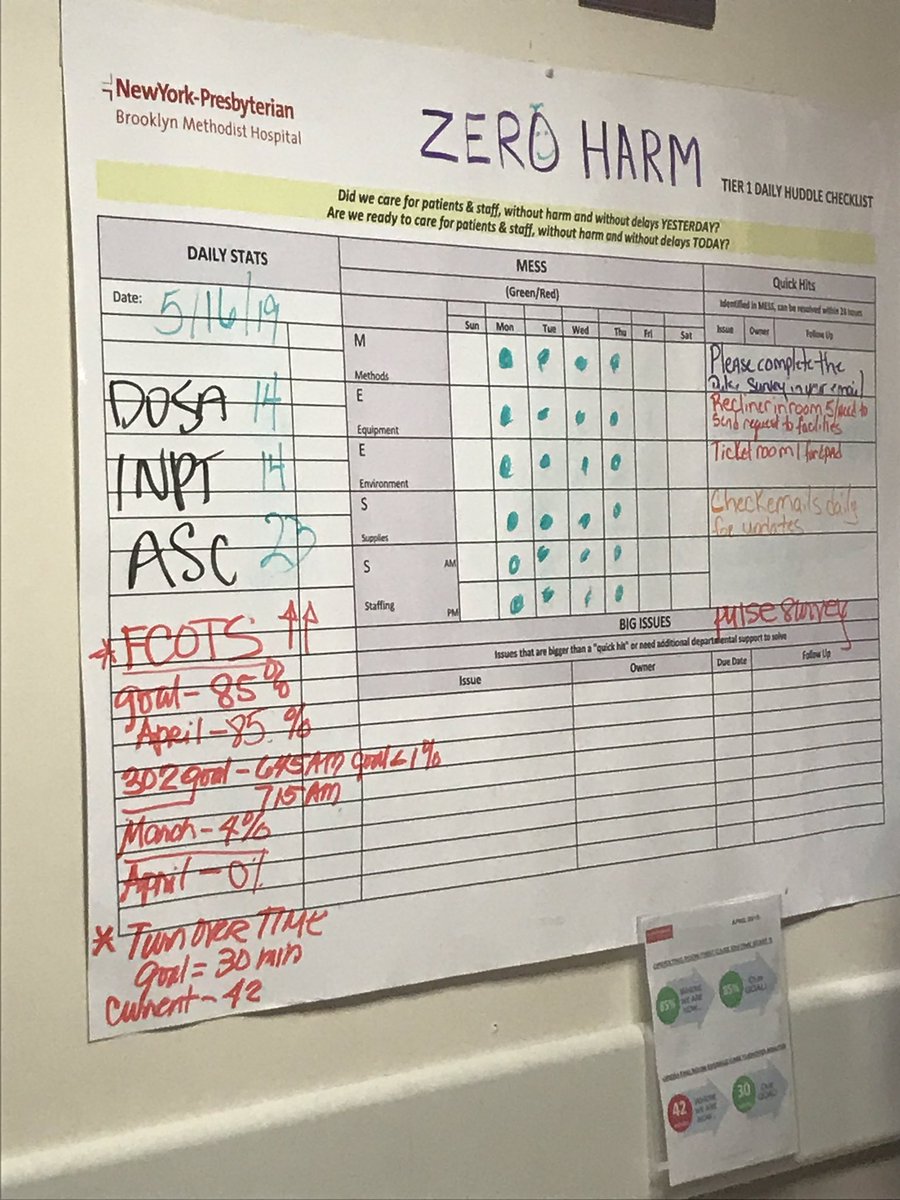 NewYork-Presbyterian
Brooklyn Methodist Hospital
ZERO HARM
TIER 1 DAILY HUDDLE CHECKLIST
Did we care for patients & staff, without harm and without delays YESTERDAY?
Are we ready to care for patients & staff, without harm and without delays TODAY?
DAILY STATS
MESS
(Green/Red)
Quick Hits
Identified in MESS, can be resolved within 24 hours
Date: 5/16/19
Sun Mon Tue Wed Thu Fri Sat
Issue Owner Follow Up
M
Methods
Please complete the
survey in your email
DOSA 14
E
Equipment
Recliner in room 5/need to
send request to facilities
INPT 14
E
Environment
Ticket room 1
S
Supplies
Check emails daily
for updates
ASC 23
S AM
Staffing PM
pulse survey
BIG ISSUES
Issues that are bigger than a "quick hit" or need additional departmental support to solve
Issue Owner Due Date Follow Up
* FCOTS ↑↑
goal - 85%
April - 85. %
302 goal - 645 AM goal < 1%
715 AM
March - 4%
April - 0%
* Turn over TIME
goal = 30 min
Current - 42
APRIL 2019
85% WHERE WE ARE NOW...
85% OUR GOAL!
42 WHERE WE ARE NOW...
30 OUR GOAL!